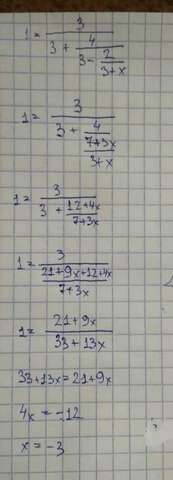 1 = 3 / (3 + 4 / (3 - 2 / (3+x)))
1 = 3 / (3 + 4 / ((7+3x) / (3+x)))
1 = 3 / (3 + (12+4x) / (7+3x))
1 = 3 / ((21+9x+12+4x) / (7+3x))
1 = (21+9x) / (33+13x)
33+13x = 21+9x
4x = -12
x = -3